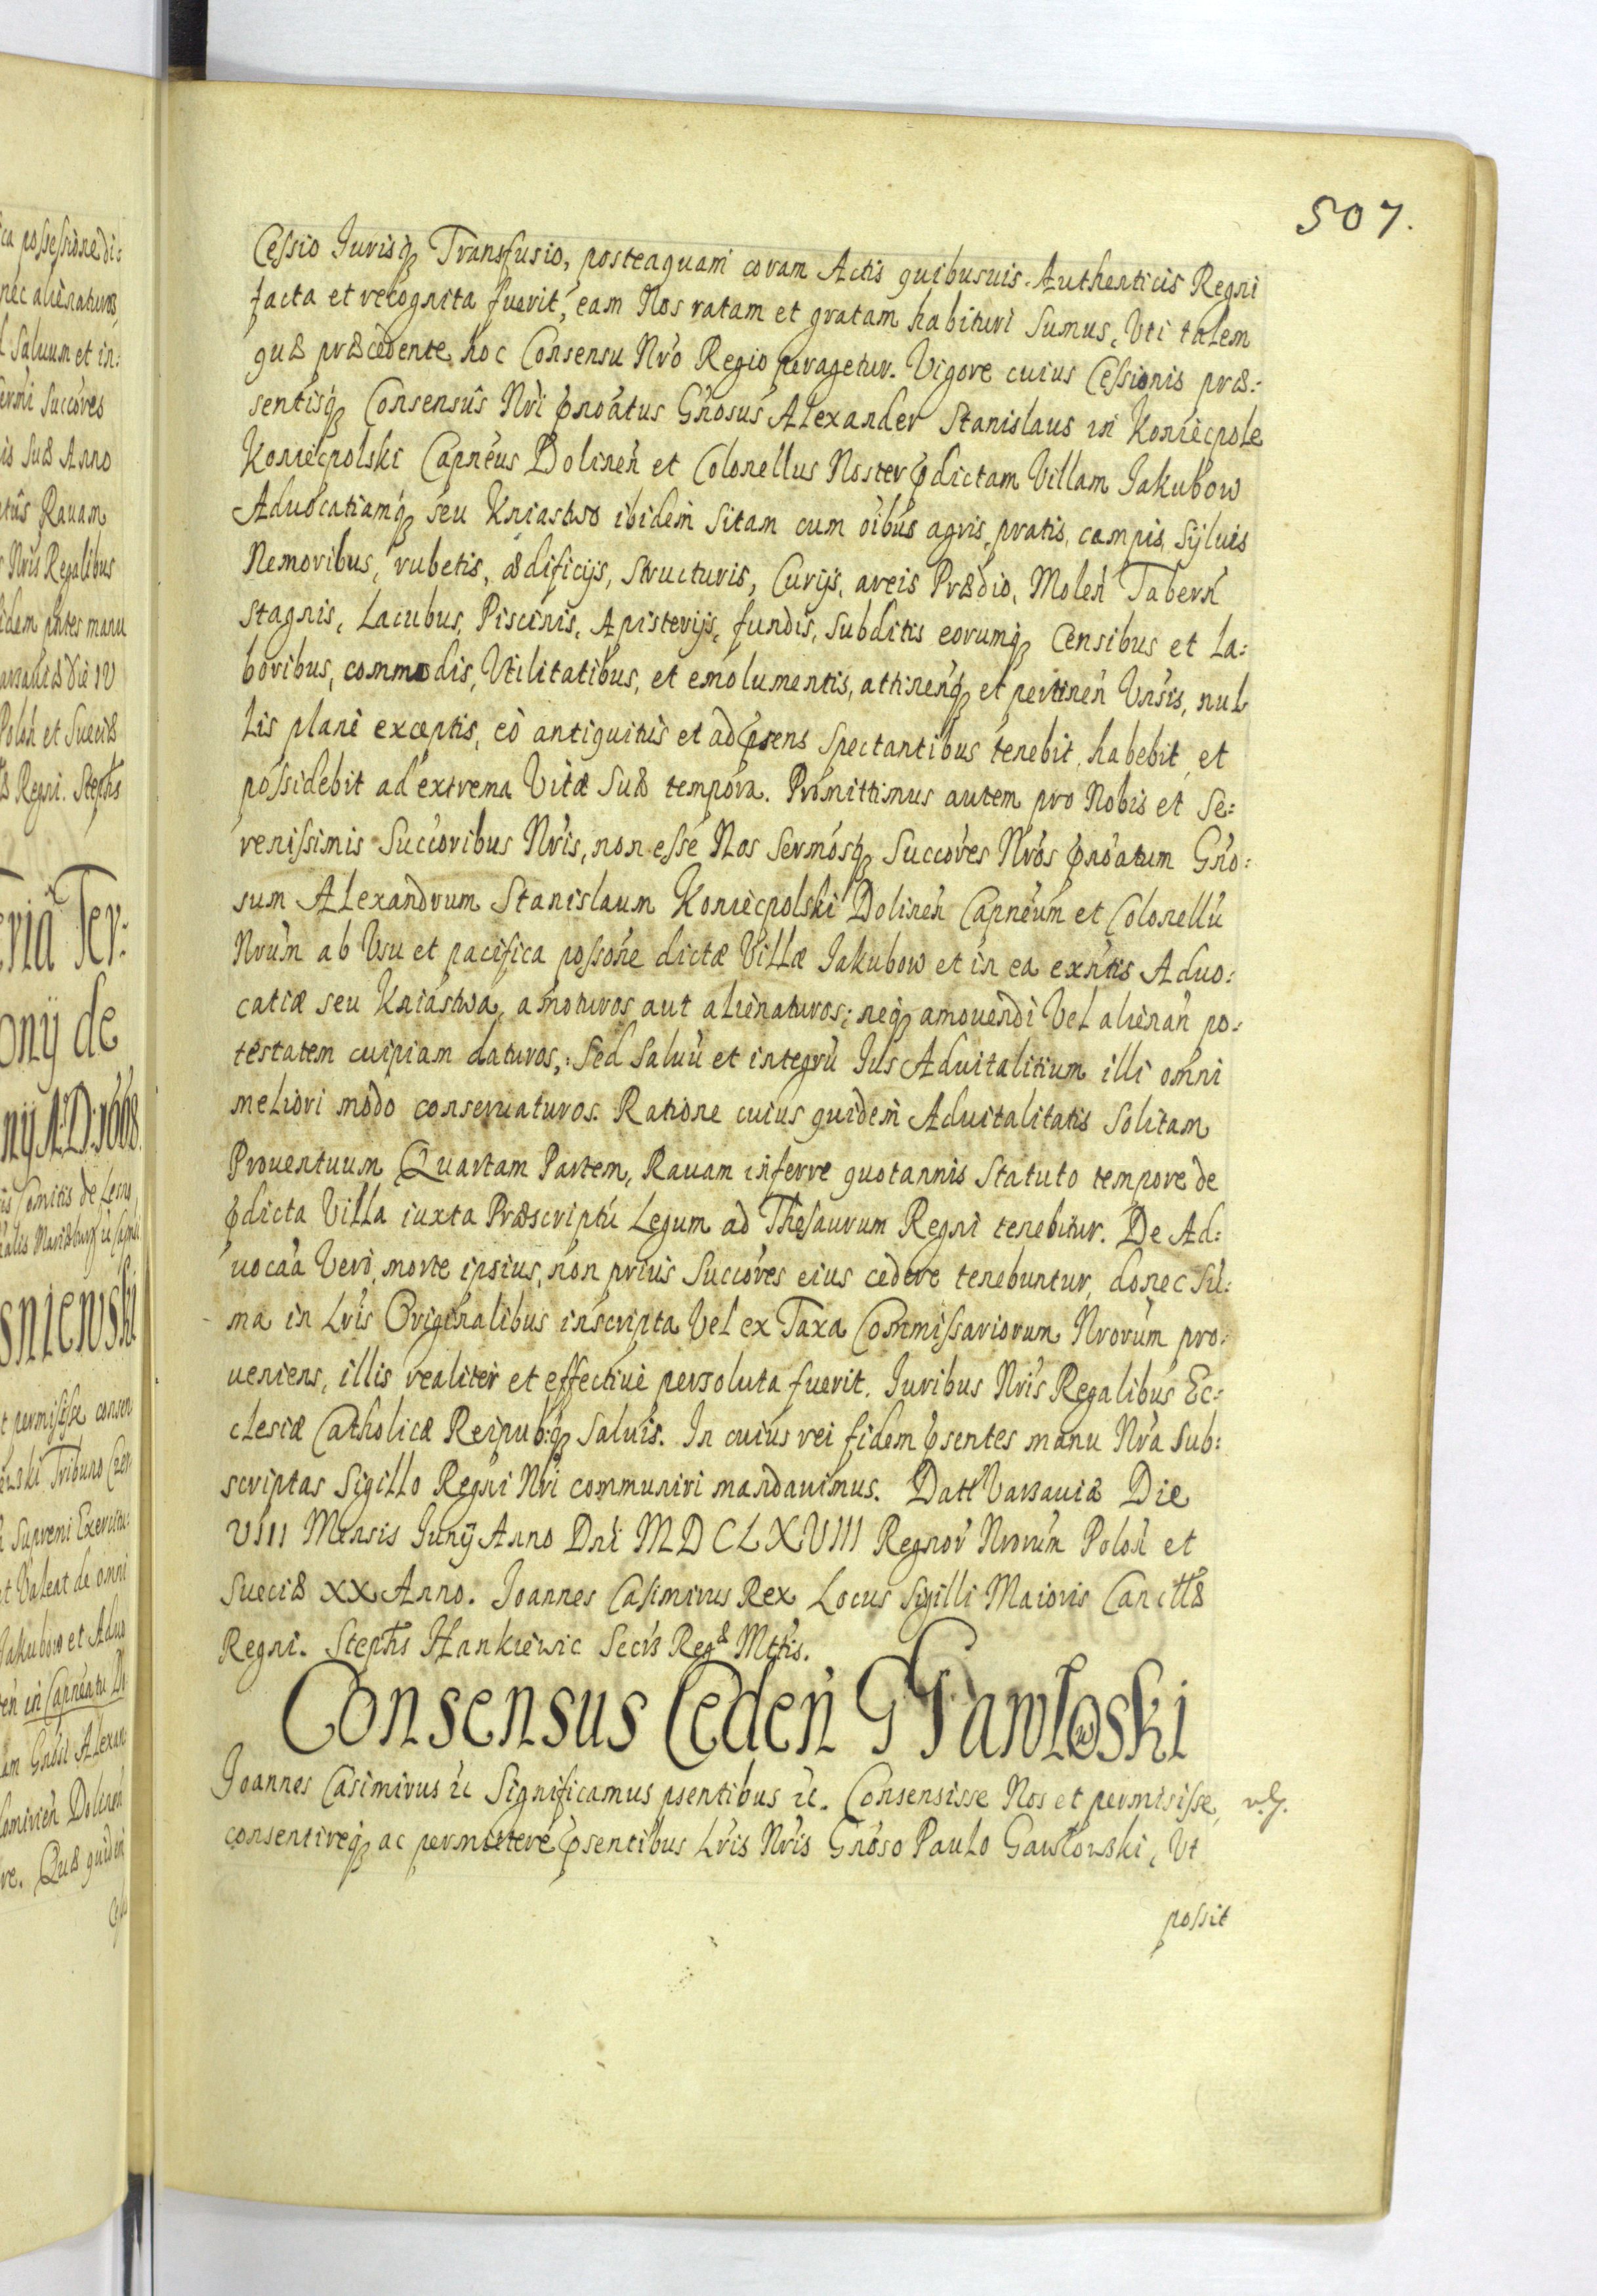 507.
Cessio Jurisq́ Transfusio, posteaquam coram Actis quibusuis Authenticis Regni
facta et recognita fuerit, eam Nos ratam et gratam habituri sumus, Vti talem
quæ præcedente hoc Consensu Nro Regio peragetur. Vigore cuius Cessionis præ:
sentisq́ Consensûs Nri pnoatus Gnosus Alexander Stanislaus in Koniecpole
Koniecpolski Capneus Dolinen et Colonellus Noster pdictam Villam Jakubow
Aduocatiamq́ seu Kniastwo ibidem sitam cum oibus agris, pratis, campis, syluis
Nemoribus, rubetis, ædificijs, structuris, Curijs, areis Prædio, Molen Tabern
stagnis, Lacubus, Piscinis, Apisterijs, fundis, subditis eorumq́ Censibus et La:
boribus, commodis, Vtilitatibus, et emolumentis, attinenq́ et pertinen Vnsis, nul
lis planè exceptis, eò antiquitùs et ad psens spectantibus tenebit, habebit, et
possidebit ad extrema Vitæ suæ tempora. Promittimus autem pro Nobis et Se:
renissimis Succoribus Nris, non esse Nos Sermosq́ Succores Nros pnoatum Gno:
sum Alexandrum Stanislaum Koniecpolski Dolinen Capneum et Colonellu
Nrum ab Vsu et pacifica possone dictæ Villæ Jakubow et in ea exntis Aduo:
catiæ seu Kniastwa, amoturos aut alienaturos; neq́ amouendi Vel alienan po:
testatem cuipiam daturos, sed saluu et integru Jus Aduitalitium illi omni
meliori modo conseruaturos. Ratione cuius quidem Aduitalitatis solitam
Prouentuum Quartam Partem, Rauam inferre quotannis statuto tempore de
pdicta Villa iuxta Præscriptu Legum ad Thesaurum Regni tenebitur. De Ad:
uocaa Verò, morte ipsius, non prius Succores eius cedere tenebuntur, donec su:
ma in Lris Originalibus inscripta Vel ex Taxa Commissariorum Nrorum pro:
ueniens, illis realiter et effectiuè persoluta fuerit. Juribus Nris Regalibus Ec:
clesiæ Catholicæ Reipub:q́ saluis. In cuius rei fidem psentes manu Nra sub:
scriptas Sigillo Regni Nri communiri mandauimus. Datt Varsauiæ Die
VIII Mensis Junij Anno Dni MDCLXVIII Regnor Nrorum Polon et
Sueciæ XX Anno. Joannes Casimirus Rex Locus Sigilli Maioris Canctt8
Regni. Stephs Hankiewic Secrs Regæ Mttis.
Consensus Ceden G Gawłowski
Joannes Casimirus &c Significamus psentibus &c. Consensisse Nos et permisisse,
consentireq́ ac permittere psentibus Lris Nris Gnoso Paulo Gawłowski, Vt
possit